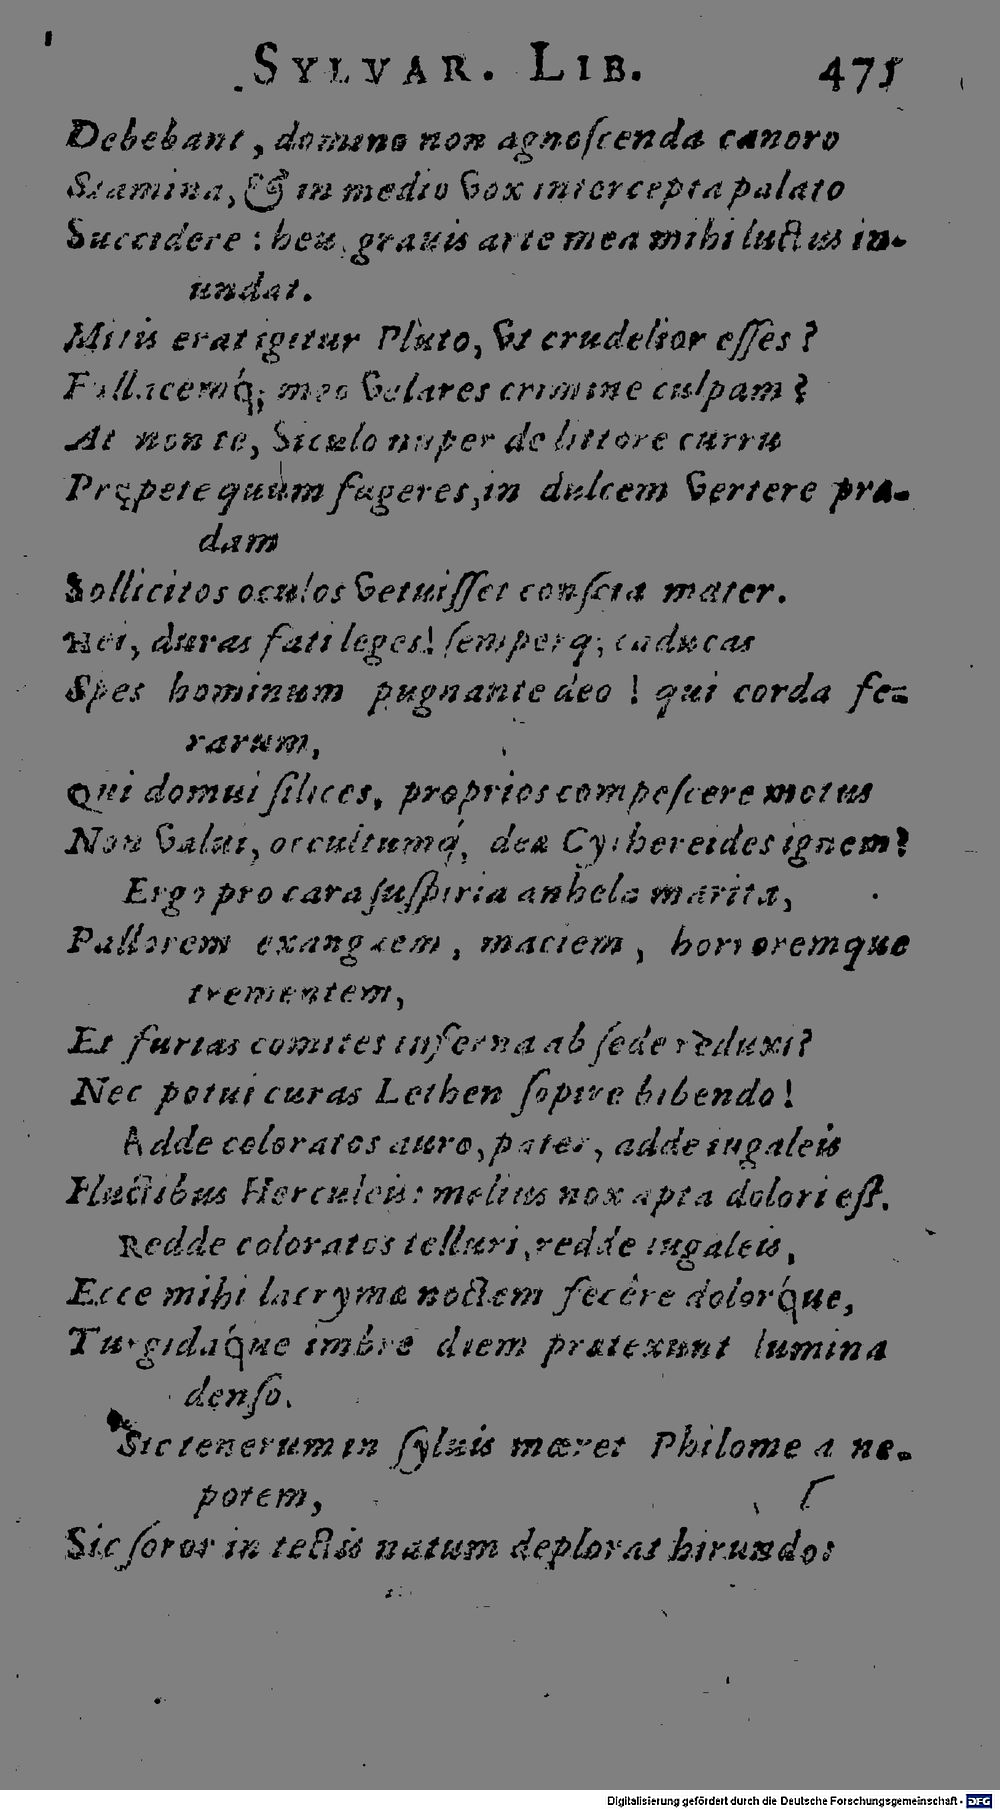 SYLVAR. LIB. 475
Debebant, domino non agnoſcenda canoro
Stamina, & in medio vox intercepta palato
Succidere: heu, grauis arte mea mihi luctus in-
undat.
Mitis erat igitur Pluto, vt crudelior eſſes?
Fallacemq́; meo velares crimine culpam?
At non te, Siculo nuper de littore curru
Prępete quum fugeres, in dulcem vertere præ-
dam
Sollicitos oculos vetuiſſet conſcia mater.
Hei, duras fati leges! ſemperq; caducas
Spes hominum pugnante deo! qui corda fe-
rarum,
Qui domui ſilices, proprios compeſcere motus
Non valui, occultumq́, deæ Cythereides ignem?
Ergo pro cara ſuſpiria anhela marita,
Pallorem exanguem, maciem, horroremque
trementem,
Et furias comites inferna ab ſede reduxi?
Nec potui curas Lethen ſopire bibendo!
Adde coloratos auro, pater, adde iugaleis
Fluctibus Herculeis: melius nox apta dolori eſt.
Redde coloratos telluri, redde iugaleis,
Ecce mihi lacrymæ noctem fecêre dolorq́ue,
Turgidaq́ue imbre diem prætexunt lumina
denſo.
Sic tenerum in ſyluis mœret Philomela ne-
potem,
Sic ſoror in tectis natum deplorat hirundo:
Digitalisierung gefördert durch die Deutsche Forschungsgemeinschaft - DFG